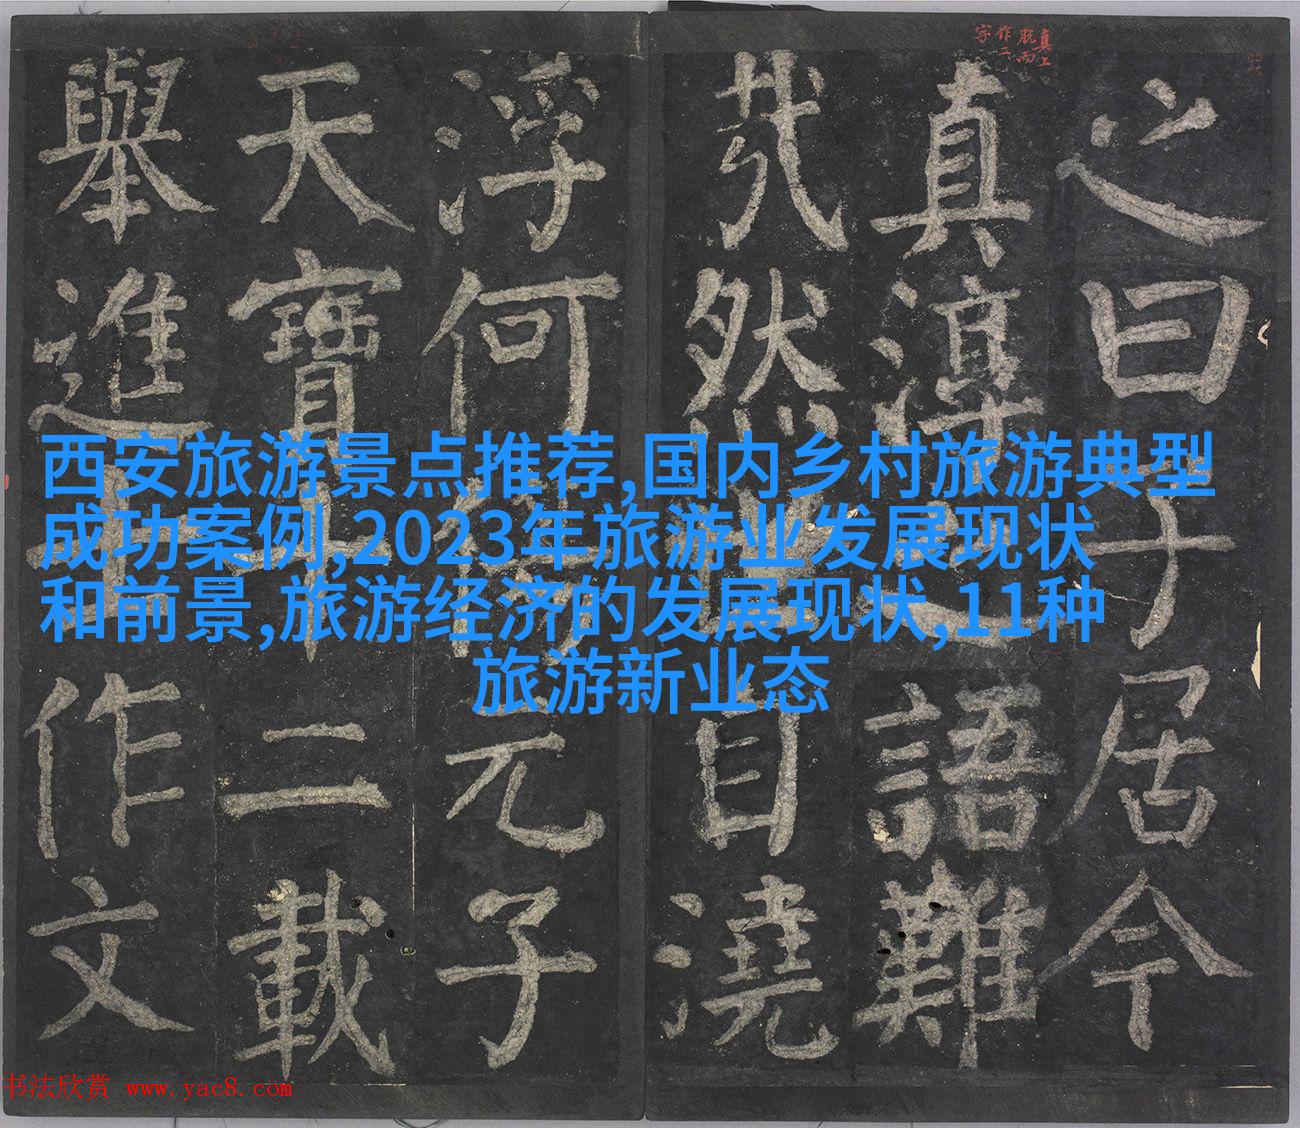 西安旅游景点推荐,国内乡村旅游典型
成功案例,2023年旅游业发展现状
和前景,旅游经济的发展现状,11种
旅游新业态
之曰子居今
真淳之語難
㢤然世自澆
浮何傷元子
天寶十二載
舉進士作文
真上
脫而
作二
字
书法欣赏 www.yac8.com